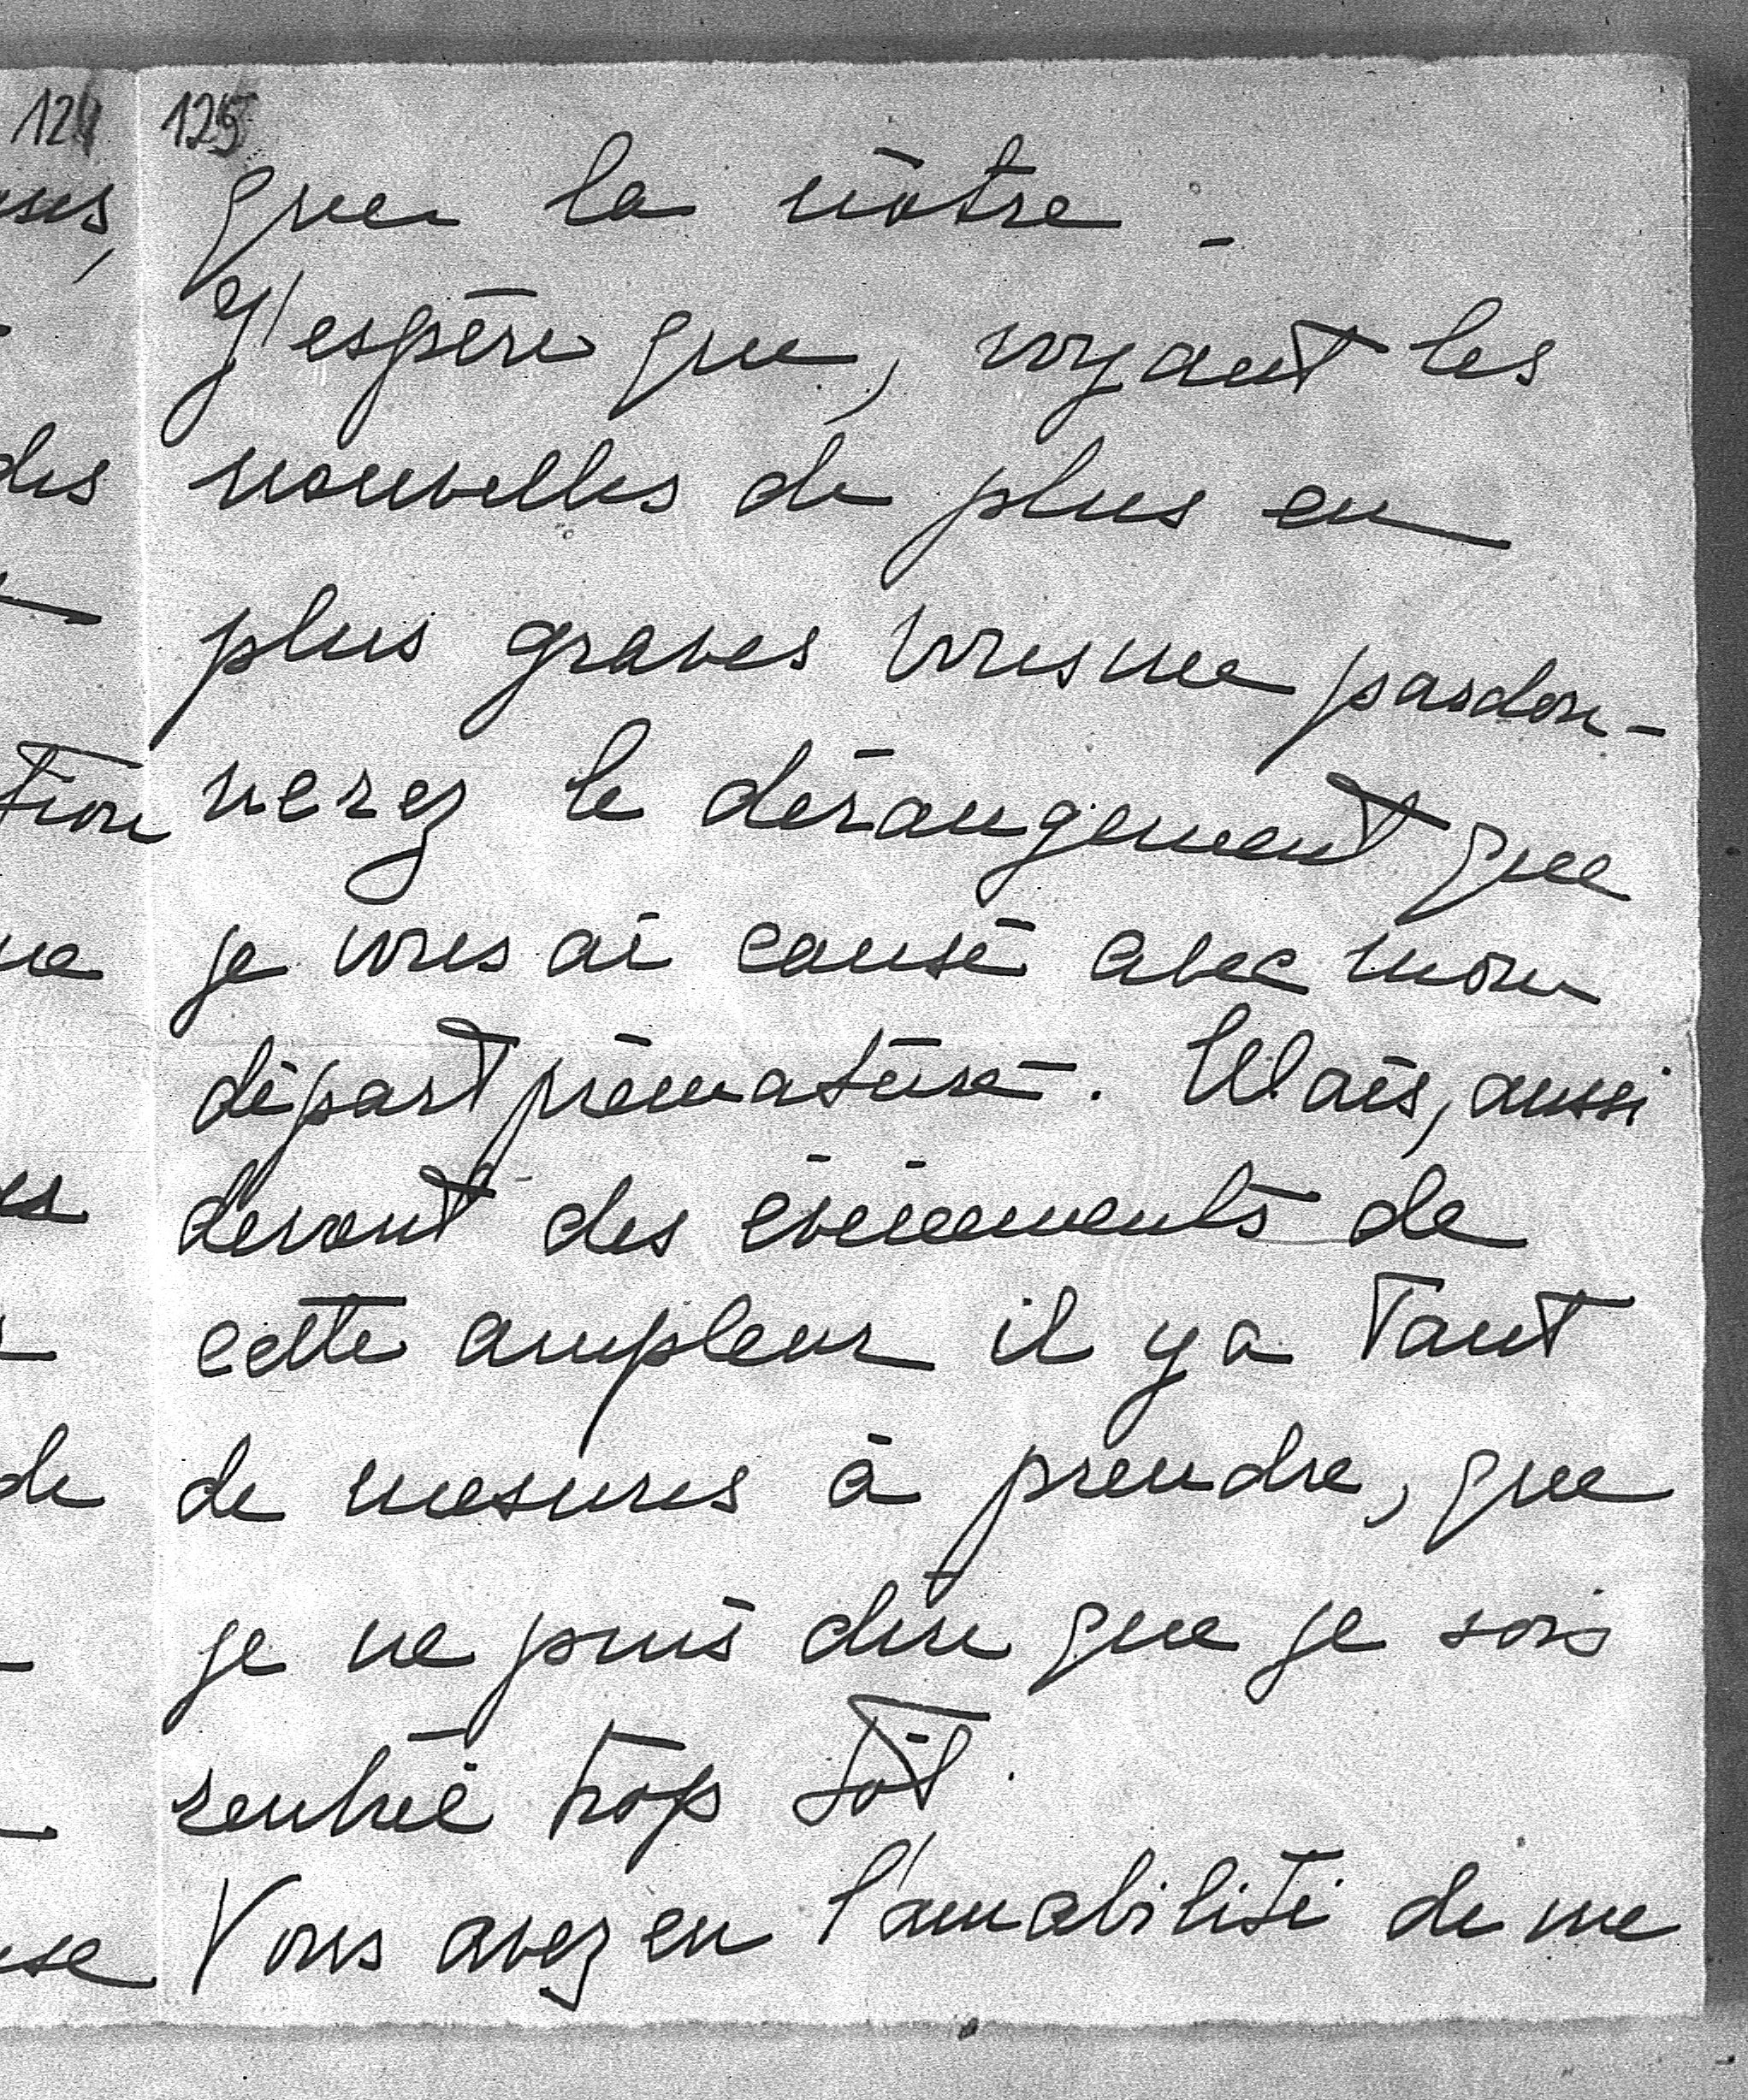 125
que la nôtre.
J'espère que, voyant les
nouvelles de plus en
plus graves vous me pardon-
nerez le dérangement que
je vous ai causé avec mon
départ prématuré. Mais, aussi
devant des événements de
cette ampleur il y a tant
de mesures à prendre, que
je ne puis dire que je sois
rentrée trop tôt.
Vous avez eu l'amabilité de me